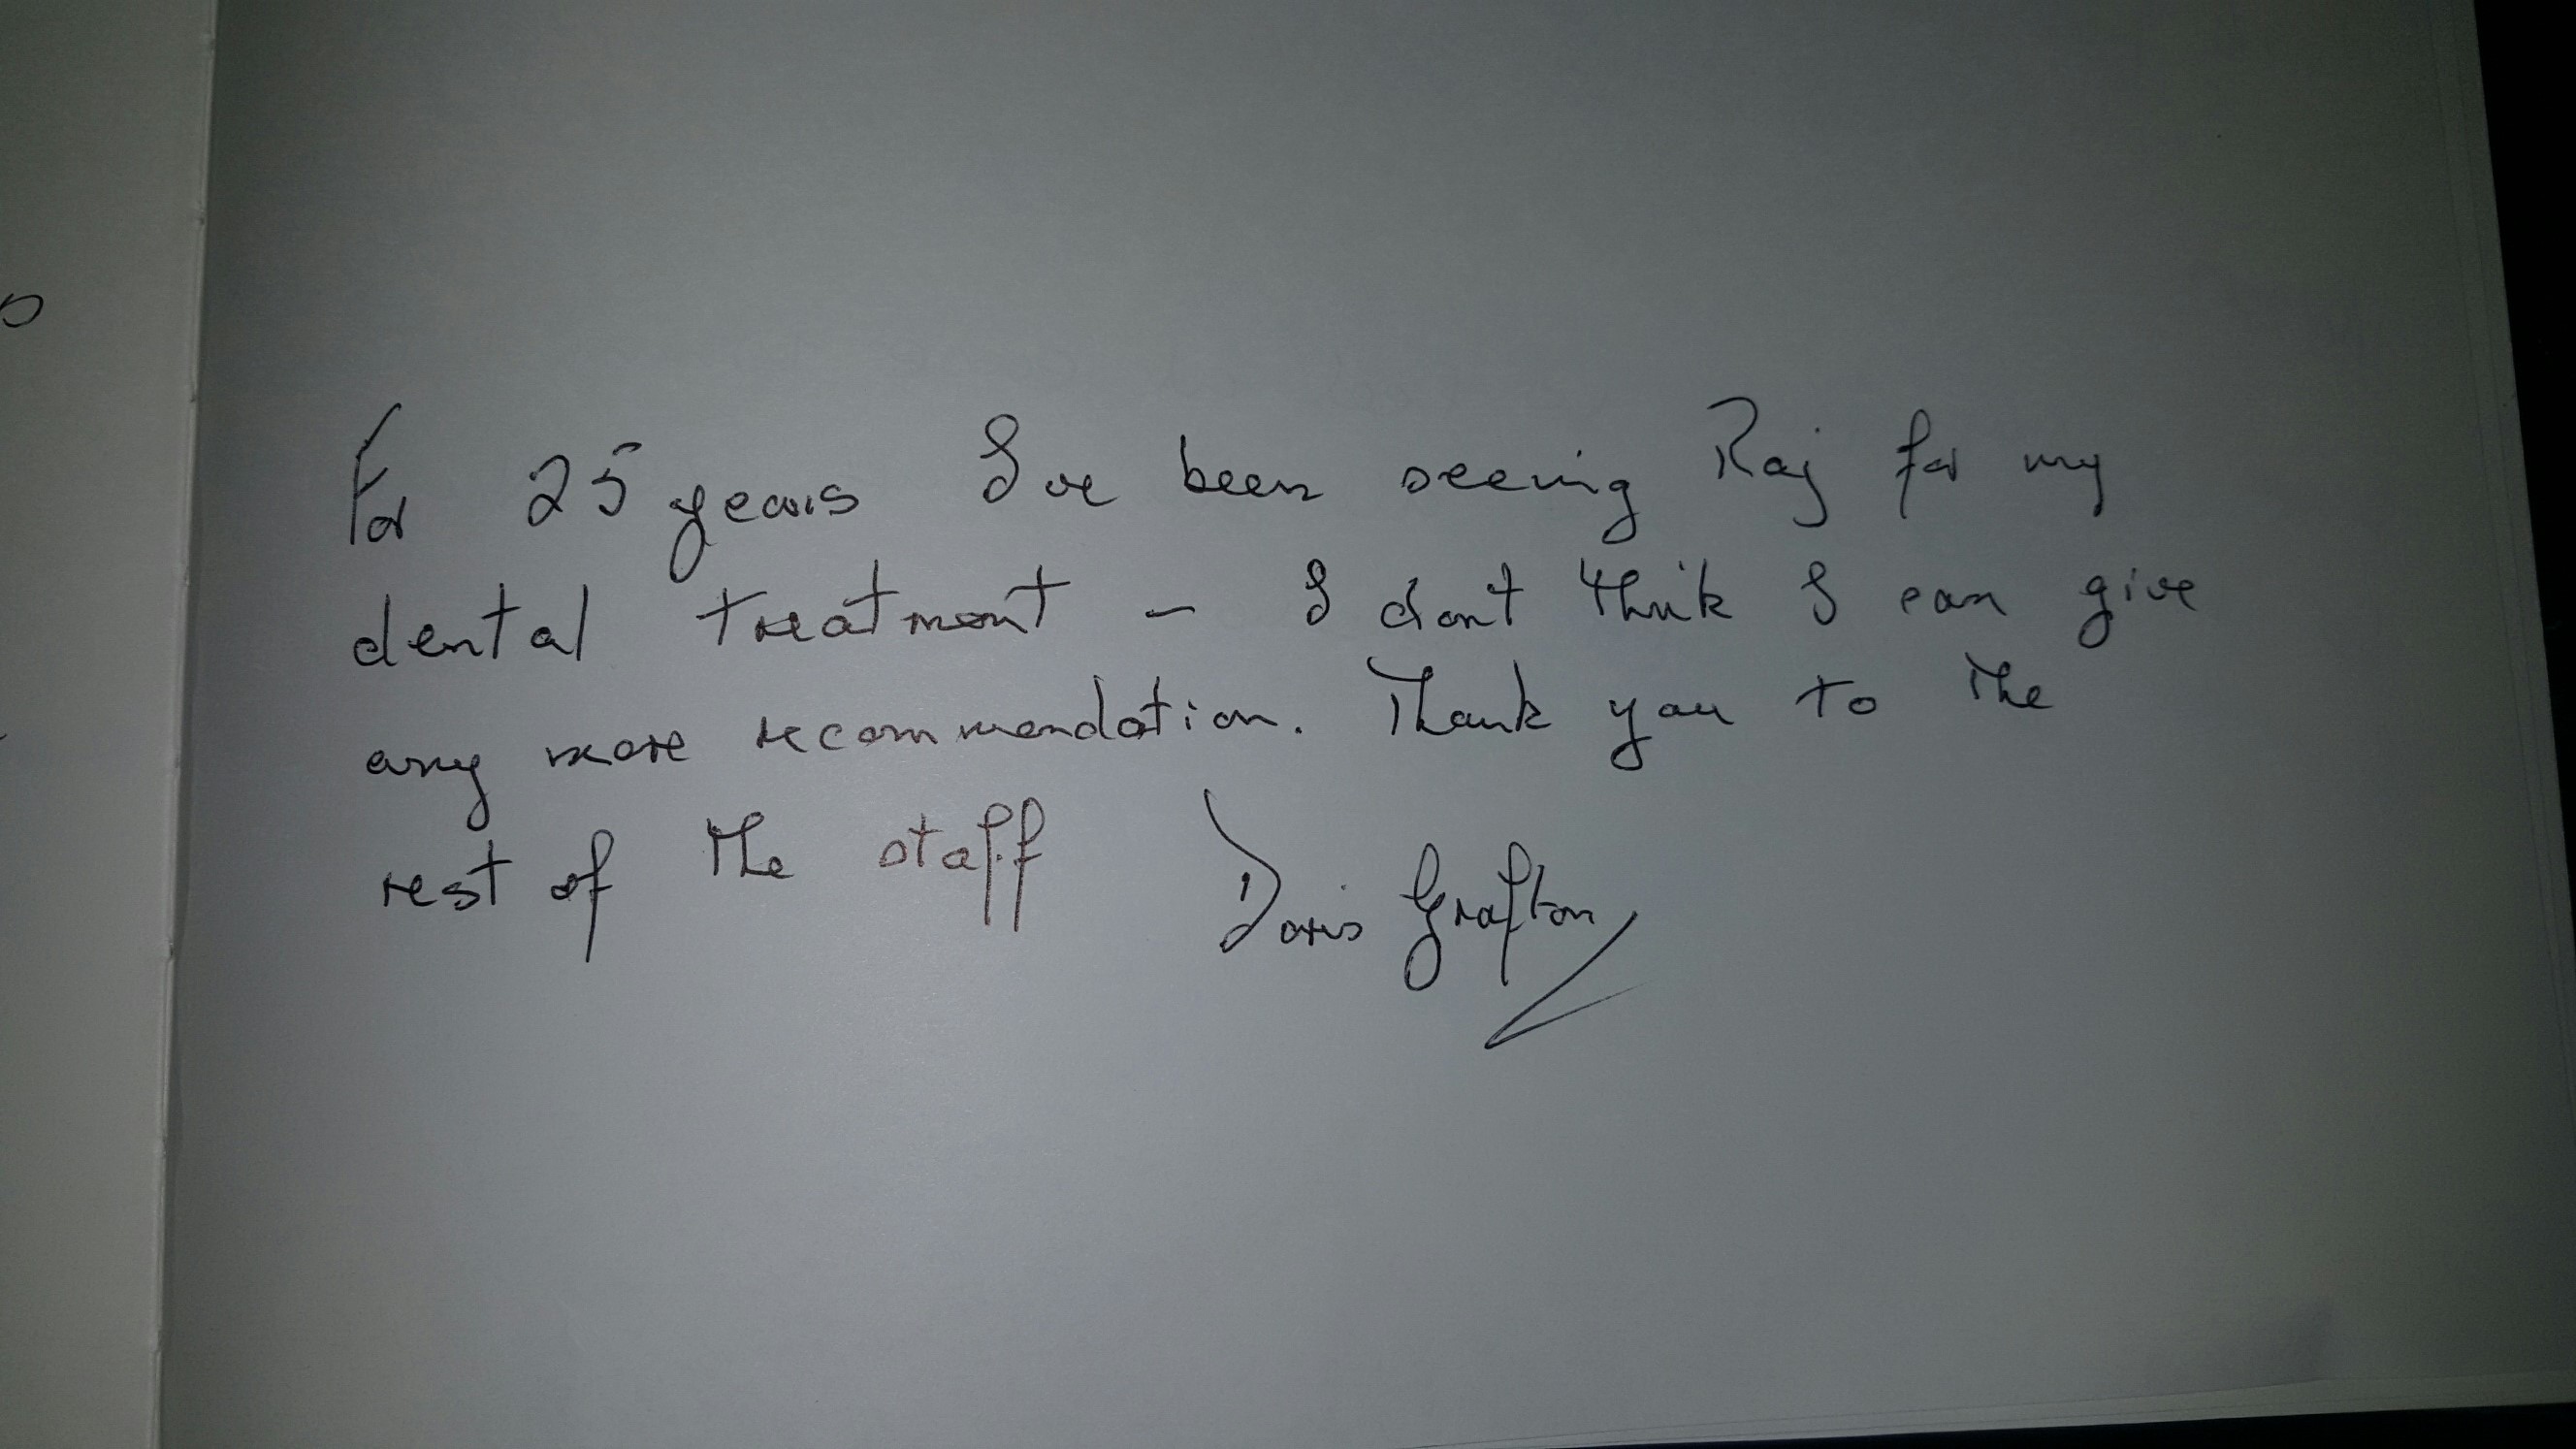 For 25 years I've been seeing Raj for my
dental treatment - I don't think I can give
any more recommendation. Thank you to the
rest of the staff Doris Grafton